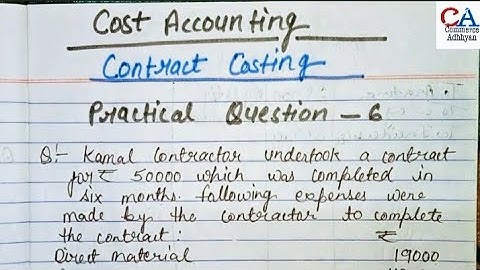 Cost Accounting
CA
Commerce
Adhhyan
Contract Costing
Practical Question - 6
Q:- Kamal Contractor undertook a contract
for ₹ 50000 which was completed in
six months. following expenses were
made by the contractor to complete
the contract : ₹
Direct material 19000